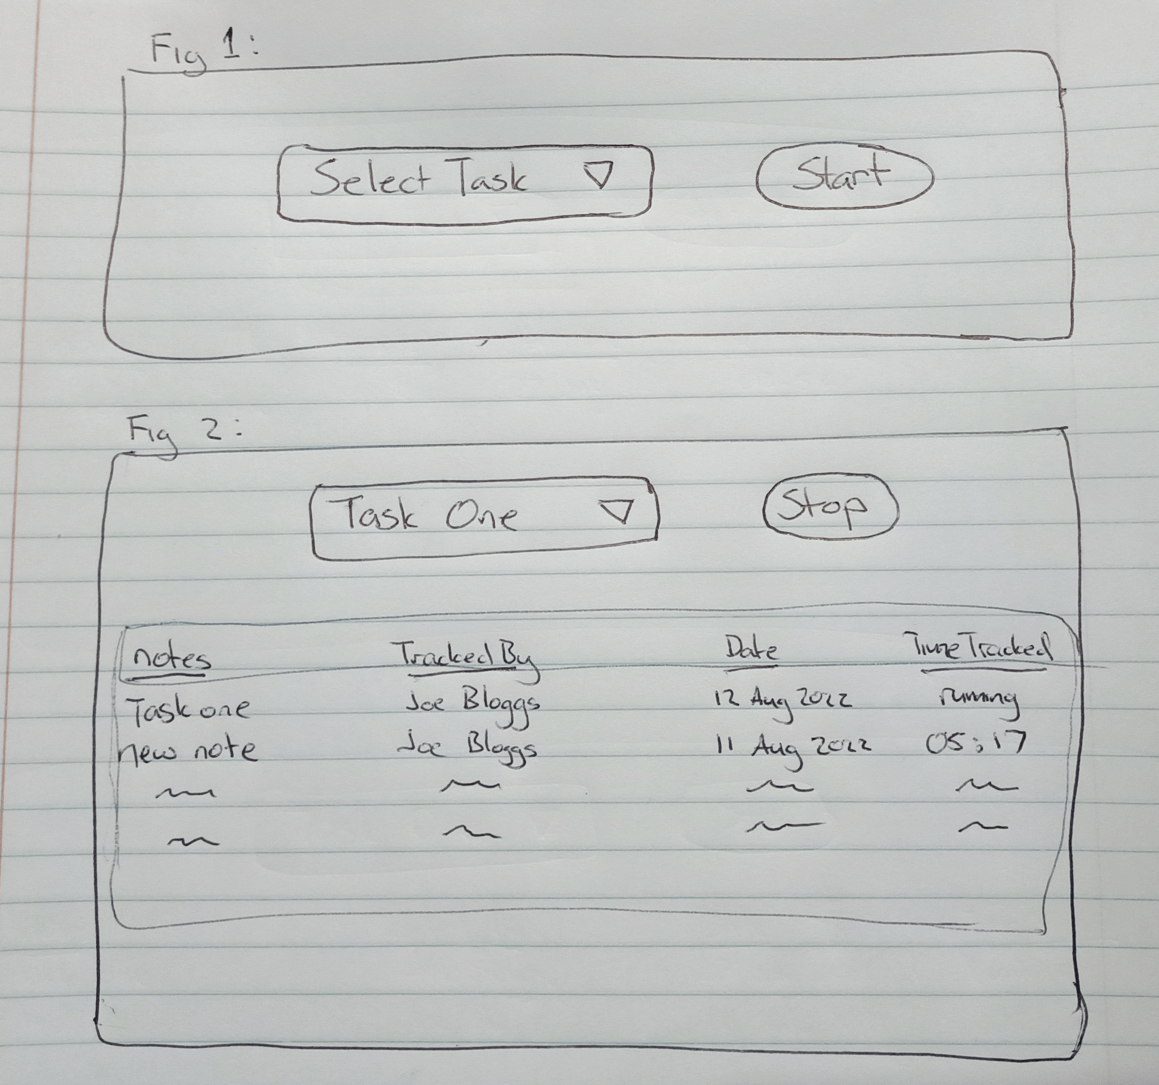 Fig 1:
Select Task Start
Fig 2:
Task One Stop
notes Tracked By Date Time Tracked
Task one Joe Bloggs 12 Aug 2022 running
new note Joe Bloggs 11 Aug 2022 05:17